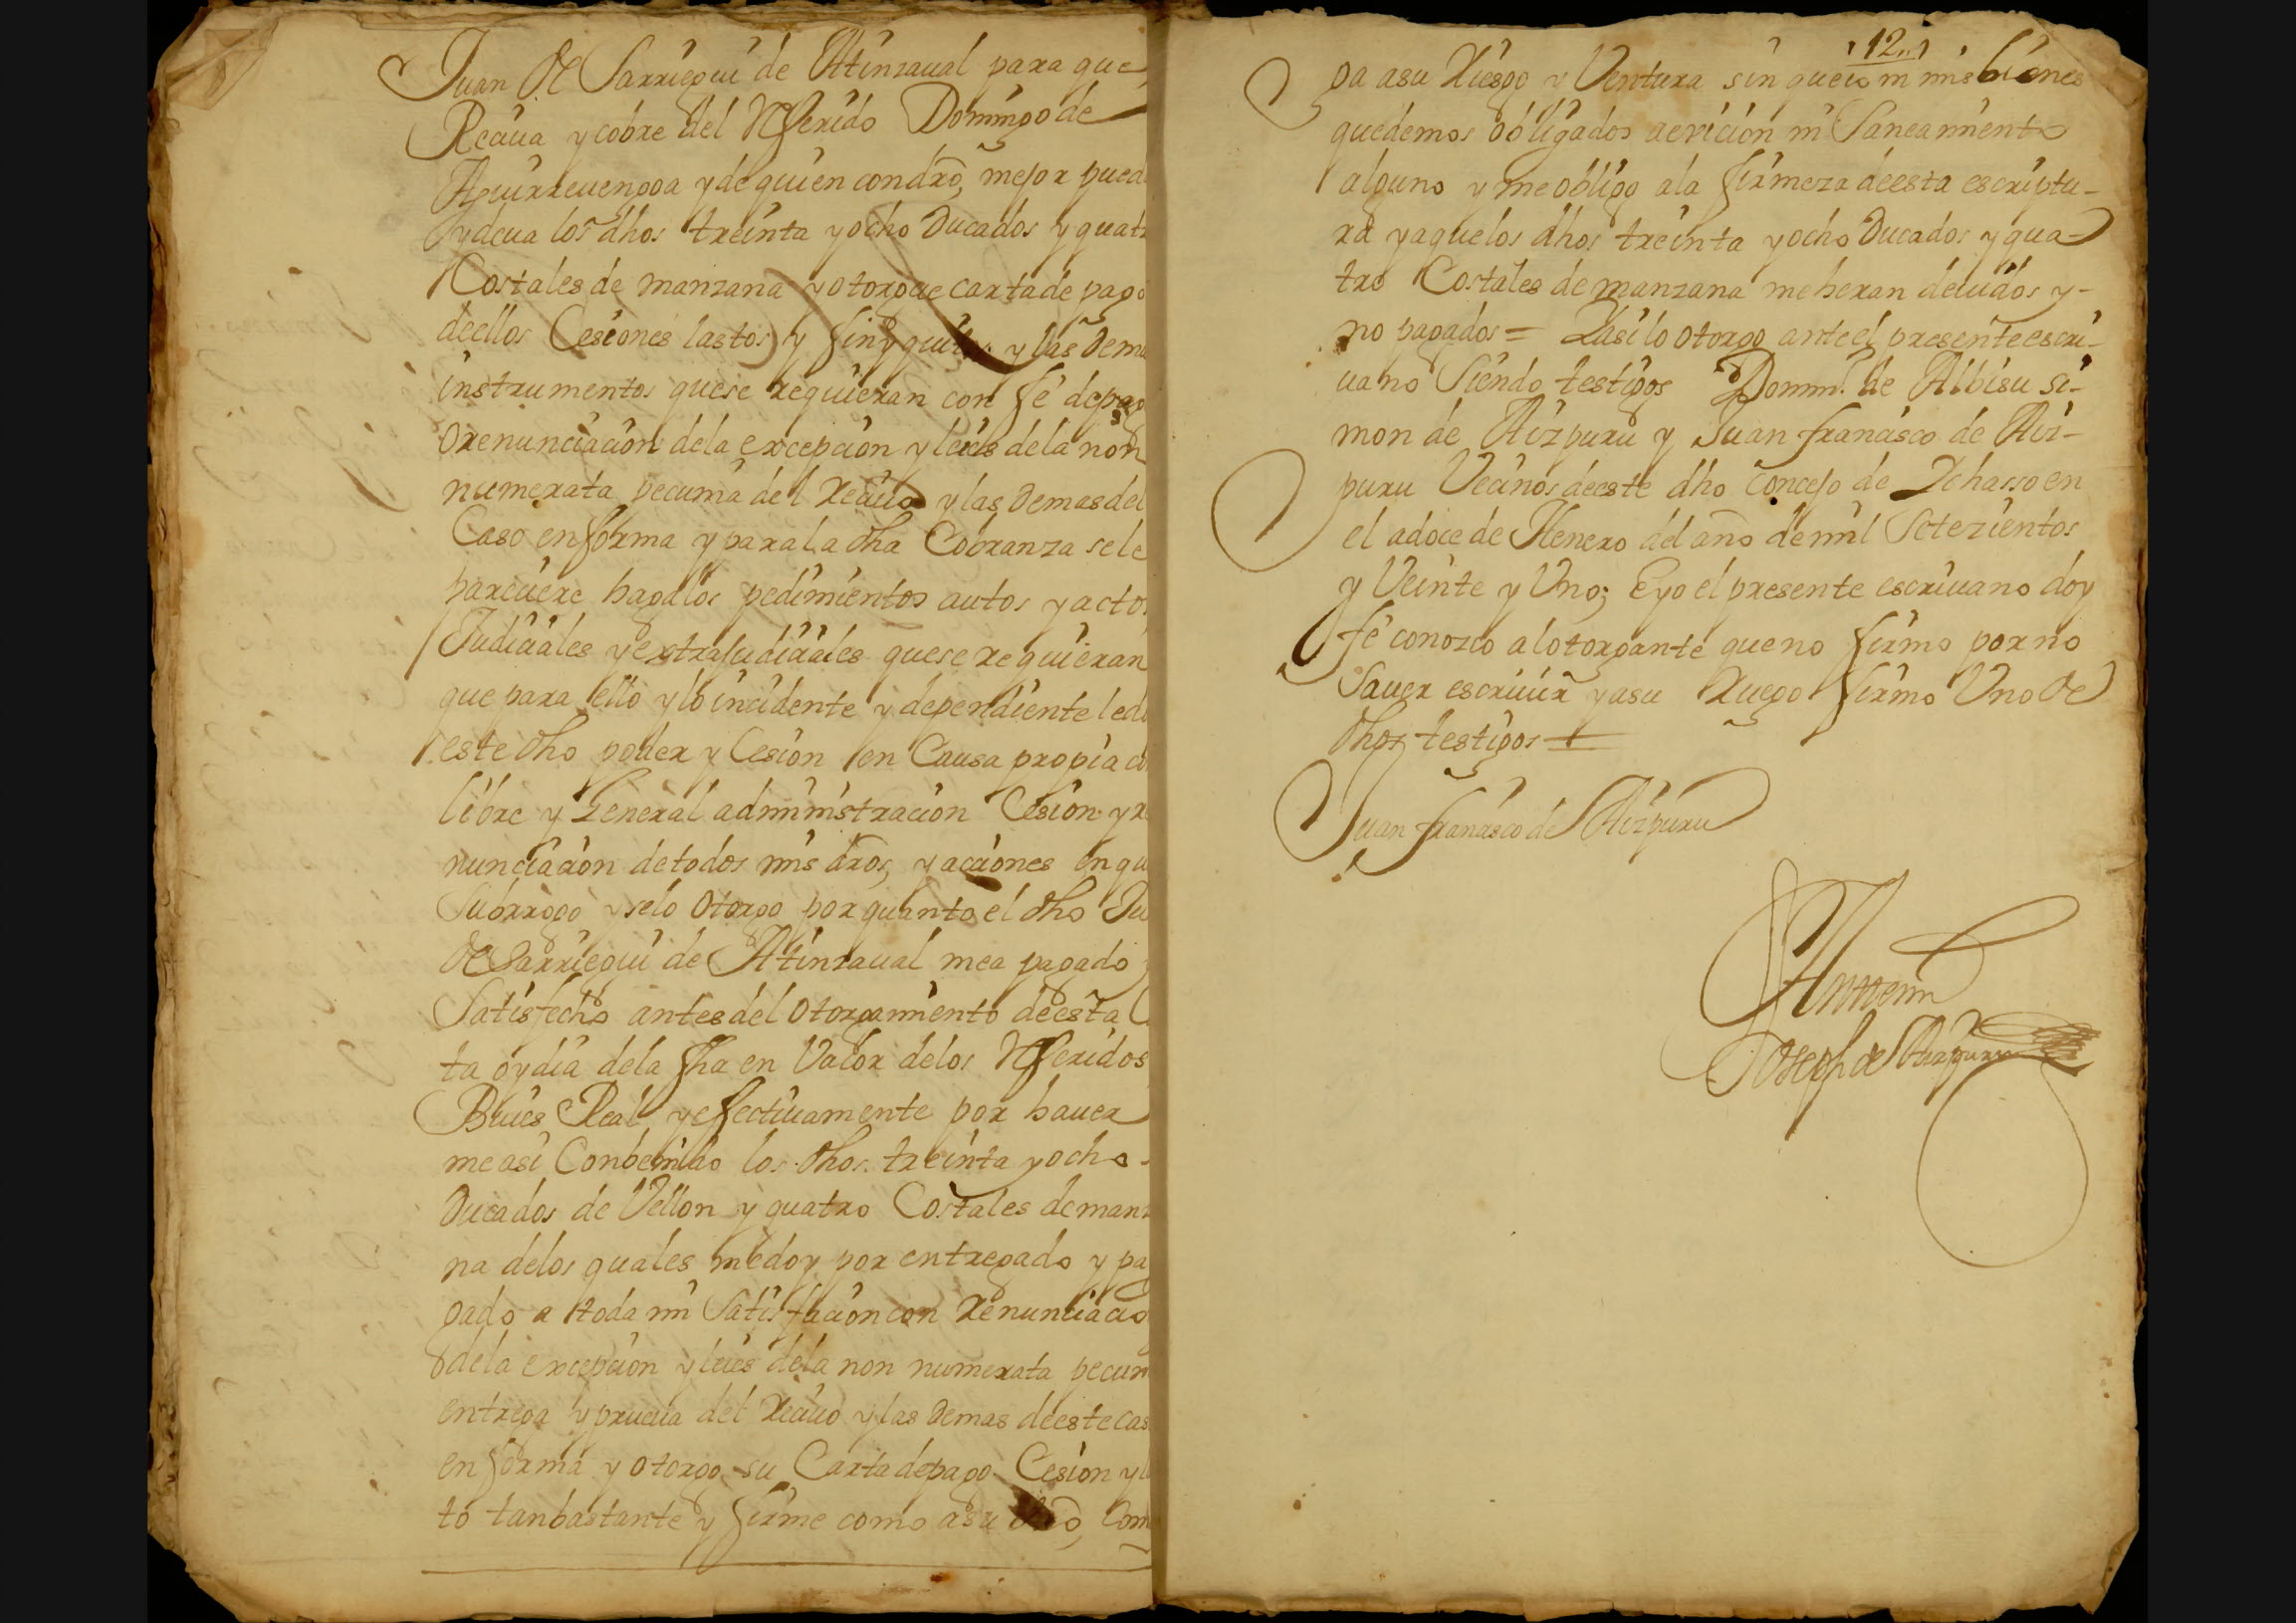 Juan de Sarriegui de Atinzaual para que
Reciua y cobre del Referido Domingo de
Aguirreuengoa y de quien con dro, mejor pued
y deua los dhos treinta y ocho Ducados y quatr
Costales de manzana y otorgue carta de pago
de ellos Cesiones lastos y finyquitos y las dema
instrumentos que se requieran con fe de pago
o renunciacion de la excepcion y leies de la non
numerata pecunia del Reciuo y las demas del
Caso en forma y para la dha Cobranza se le
pareciere haga los pedimientos autos y actos
Judiciales y extrajudiciales que se requieran
que para ello y lo incidente y dependiente le do
este dho poder y Cesion en Causa propia co
libre y General administracion Cesion y re
nunciacion de todos mis dros, y acciones en qu
Subrrogo y selo otorgo por quanto el dho Ju
de Sarriegui de Atinzaual mea pagado y
Satisfecho antes del otorgamiento de esta C
ta oy dia de la fha en Valor de los Referidos
Bues Real y efectiuamente por hauer
me asi Conbenido los dhos treinta y ocho
Ducados de Vellon y quatro Costales de manz
na de los quales me doy por entregado y pa
gado a toda mi Satisfacion con Renunciacio
de la excepcion y leies de la non numerata pecun
entrega y prueua del Reciuo y las demas de este cas
en forma y otorgo su Carta de pago Cesion y l
to tan bastante y firme como a su dro, Com
12
ga a su Riesgo y Ventura sin que io ni mis bienes
quedemos obligados a evicion ni Saneamiento
alguno y me obligo a la firmeza de esta escriptu-
ra y a quelos dhos treinta y ocho Ducados y qua-
tro Costales de manzana me heran deuidos y-
no pagados = Y asi lo otorgo ante el presente escri-
uano Siendo testigos Domin. de Albisu Si-
mon de Aizpuru y Juan francisco de Aiz-
puru Vecinos de este dho concejo de Ychasso en
el a doce de Henero del año de mil Setezientos
y Veinte y Uno; E yo el presente escriuano doy
fe conozco al otorgante que no firmo por no
Sauer escriuir y a su Ruego firmo Uno de
dhos testigos =
Juan francisco de Aizpuru
Ante mi
Joseph de Aizpuru